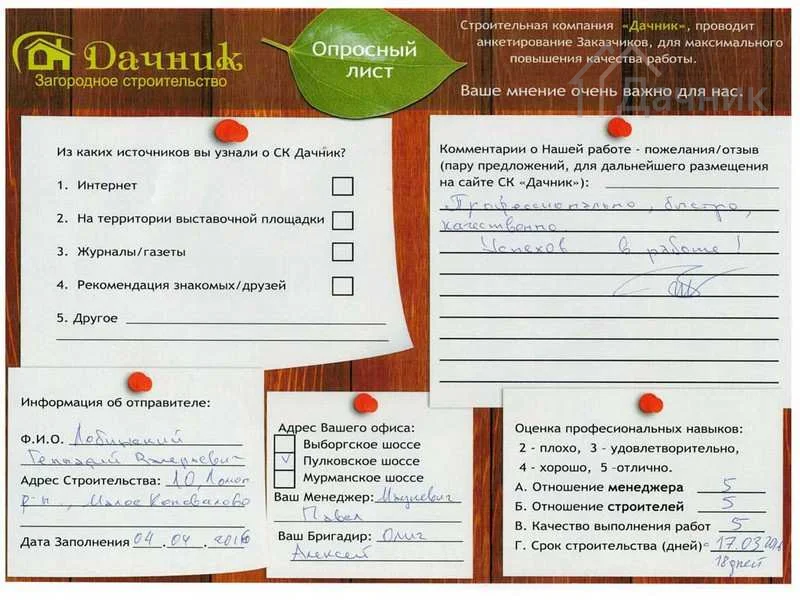 Дачник
Загородное строительство
Опросный
лист
Строительная компания «Дачник», проводит
анкетирование Заказчиков, для максимального
повышения качества работы.
Ваше мнение очень важно для нас.
Дачник
Из каких источников вы узнали о СК Дачник?
1. Интернет
2. На территории выставочной площадки
3. Журналы/газеты
4. Рекомендация знакомых/друзей
5. Другое
Комментарии о Нашей работе - пожелания/отзыв
(пару предложений, для дальнейшего размещения
на сайте СК «Дачник»):
Профессионально, быстро,
качественно
Успехов в работе!
Информация об отправителе:
Ф.И.О.
Геннадий Валерьевич
Адрес Строительства: ЛО, Ломон.
р-н, Малое Коновалово
Дата Заполнения 04.04.2016
Адрес Вашего офиса:
Выборгское шоссе
V Пулковское шоссе
Мурманское шоссе
Ваш Менеджер:
Павел
Ваш Бригадир:
Алексей
Оценка профессиональных навыков:
2 - плохо, 3 - удовлетворительно,
4 - хорошо, 5 -отлично.
А. Отношение менеджера 5
Б. Отношение строителей 5
В. Качество выполнения работ 5
Г. Срок строительства (дней) с 17.03.2016
18 дней